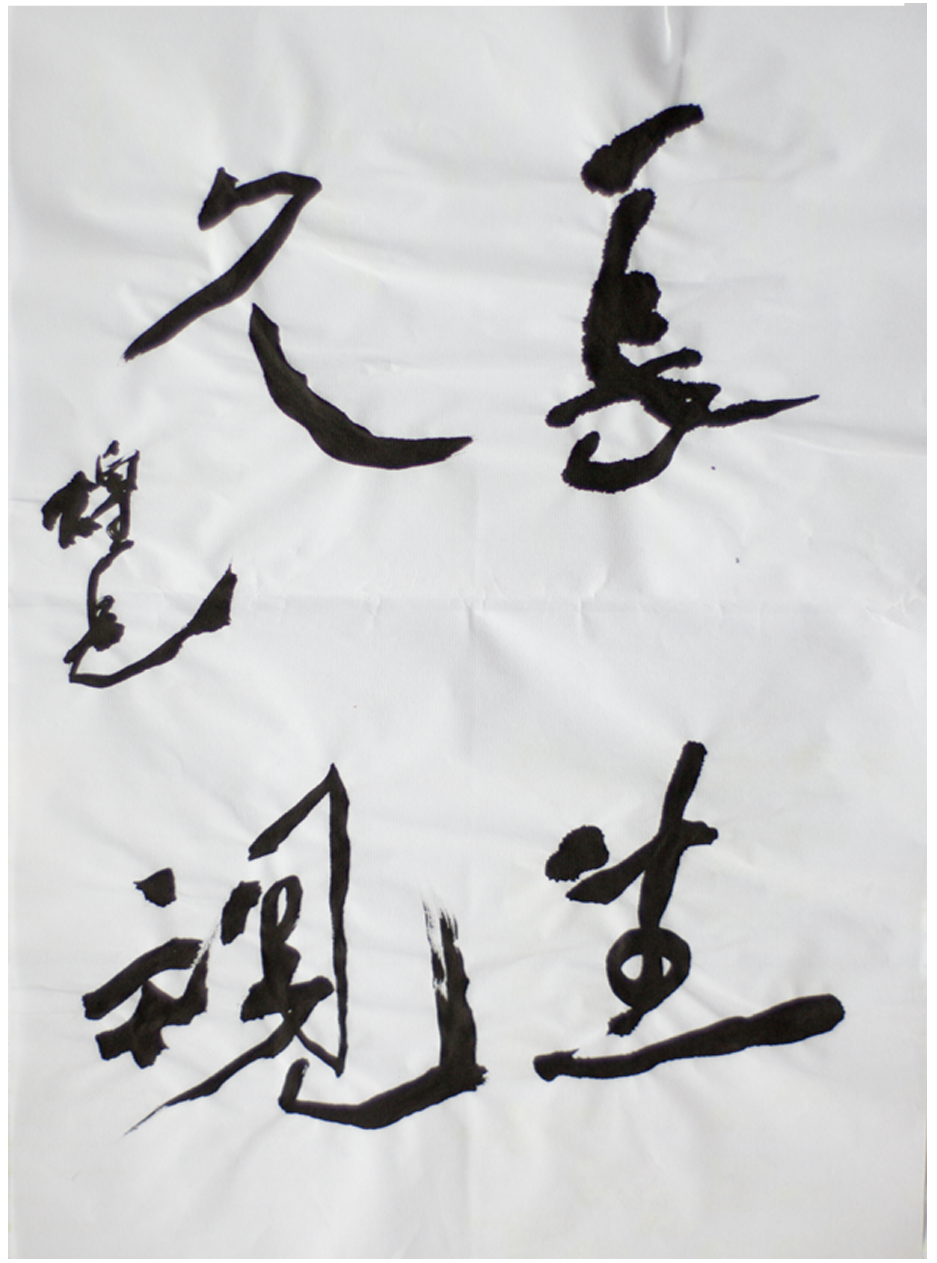 長生
久視